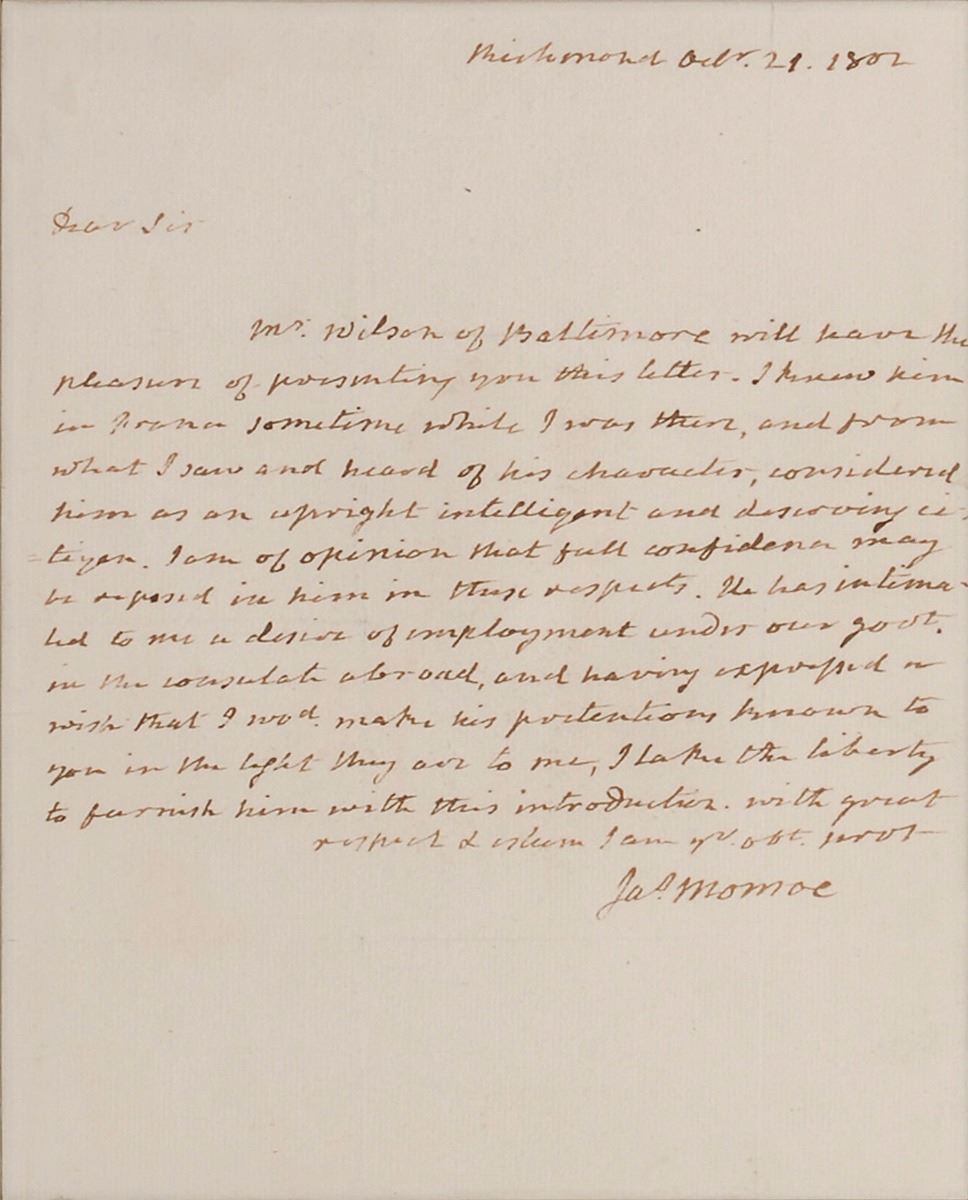 Richmond Octr. 21. 1802
Dear Sir
Mr. Wilson of Baltimore will have the
pleasure of presenting you this letter. I knew him
in France sometime while I was there, and from
what I saw and heard of his character, considered
him as an upright intelligent and deserving ci-
=tizen. I am of opinion that full confidence may
be reposed in him in these respects. He has intima-
ted to me a desire of employment under our govt.
in the consulate abroad, and having expressed a
wish that I wod. make his pretentions known to
you in the light they are to me, I take the liberty
to furnish him with this introduction. with great
respect & esteem I am yr. obt. servt
Jas. Monroe